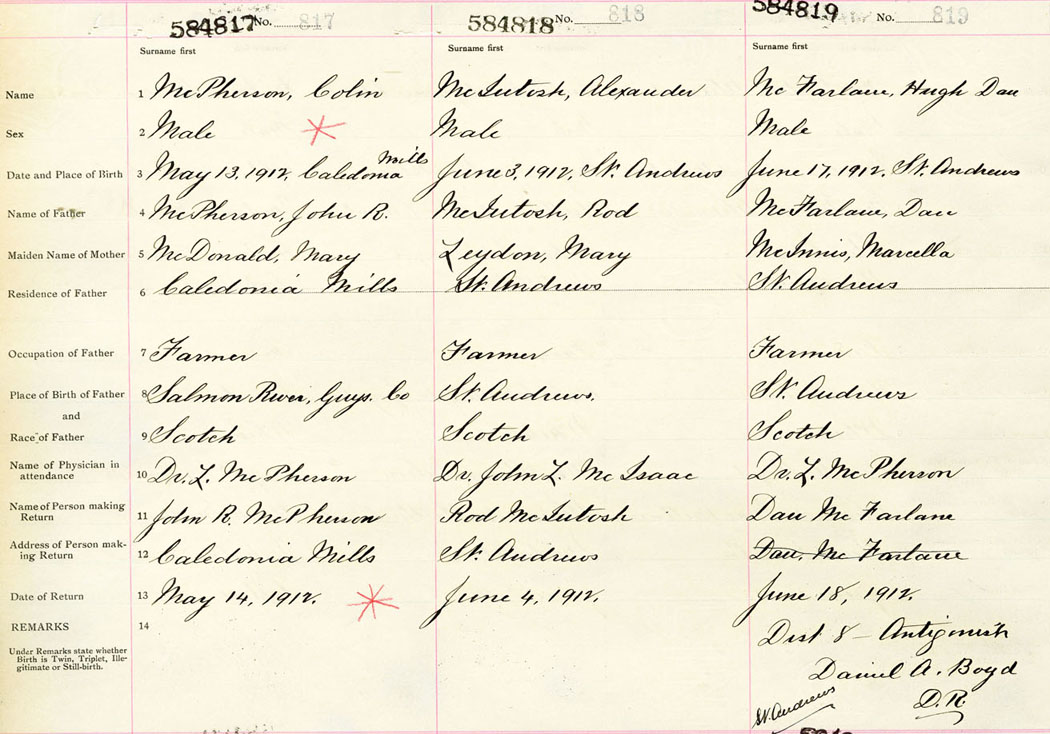 584817 No. 817 584818 No. 818 584819 No. 819
Surname first Surname first Surname first
Name 1 McPherson, Colin McIntosh, Alexander McFarlane, Hugh Dan
Sex 2 Male Male Male
Mills
Date and Place of Birth 3 May 13, 1912, Caledonia June 3, 1912, St. Andrews June 17, 1912, St. Andrews
Name of Father 4 McPherson, John R. McIntosh, Rod McFarlane, Dan
Maiden Name of Mother 5 McDonald, Mary Leydon, Mary McInnis, Marcella
Residence of Father 6 Caledonia Mills St. Andrews St. Andrews
Occupation of Father 7 Farmer Farmer Farmer
Place of Birth of Father 8 Salmon River, Guys. Co St. Andrews. St. Andrews
and
Race of Father 9 Scotch Scotch Scotch
Name of Physician in
attendance 10 Dr. L. McPherson Dr. John L. McIsaac Dr. L. McPherson
Name of Person making
Return 11 John R. McPherson Rod McIntosh Dan McFarlane
Address of Person mak-
ing Return 12 Caledonia Mills St. Andrews Dan. McFarlane
Date of Return 13 May 14, 1912. June 4, 1912. June 18, 1912.
REMARKS 14 Dist 8 – Antigonish
Under Remarks state whether
Birth is Twin, Triplet, Ille-
gitimate or Still-birth.
Daniel A. Boyd
St. Andrews D.R.